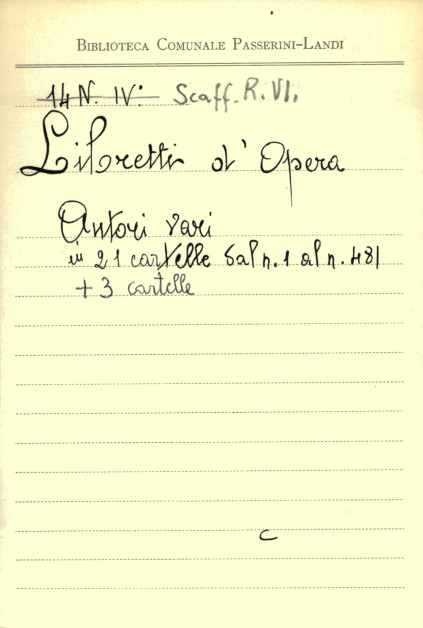 BIBLIOTECA COMUNALE PASSERINI-LANDI
14 N. IV: Scaff. R. VI.
Libretti d'Opera
Autori vari
in 21 cartelle dal n. 1 al n. 481
+ 3 cartelle
C